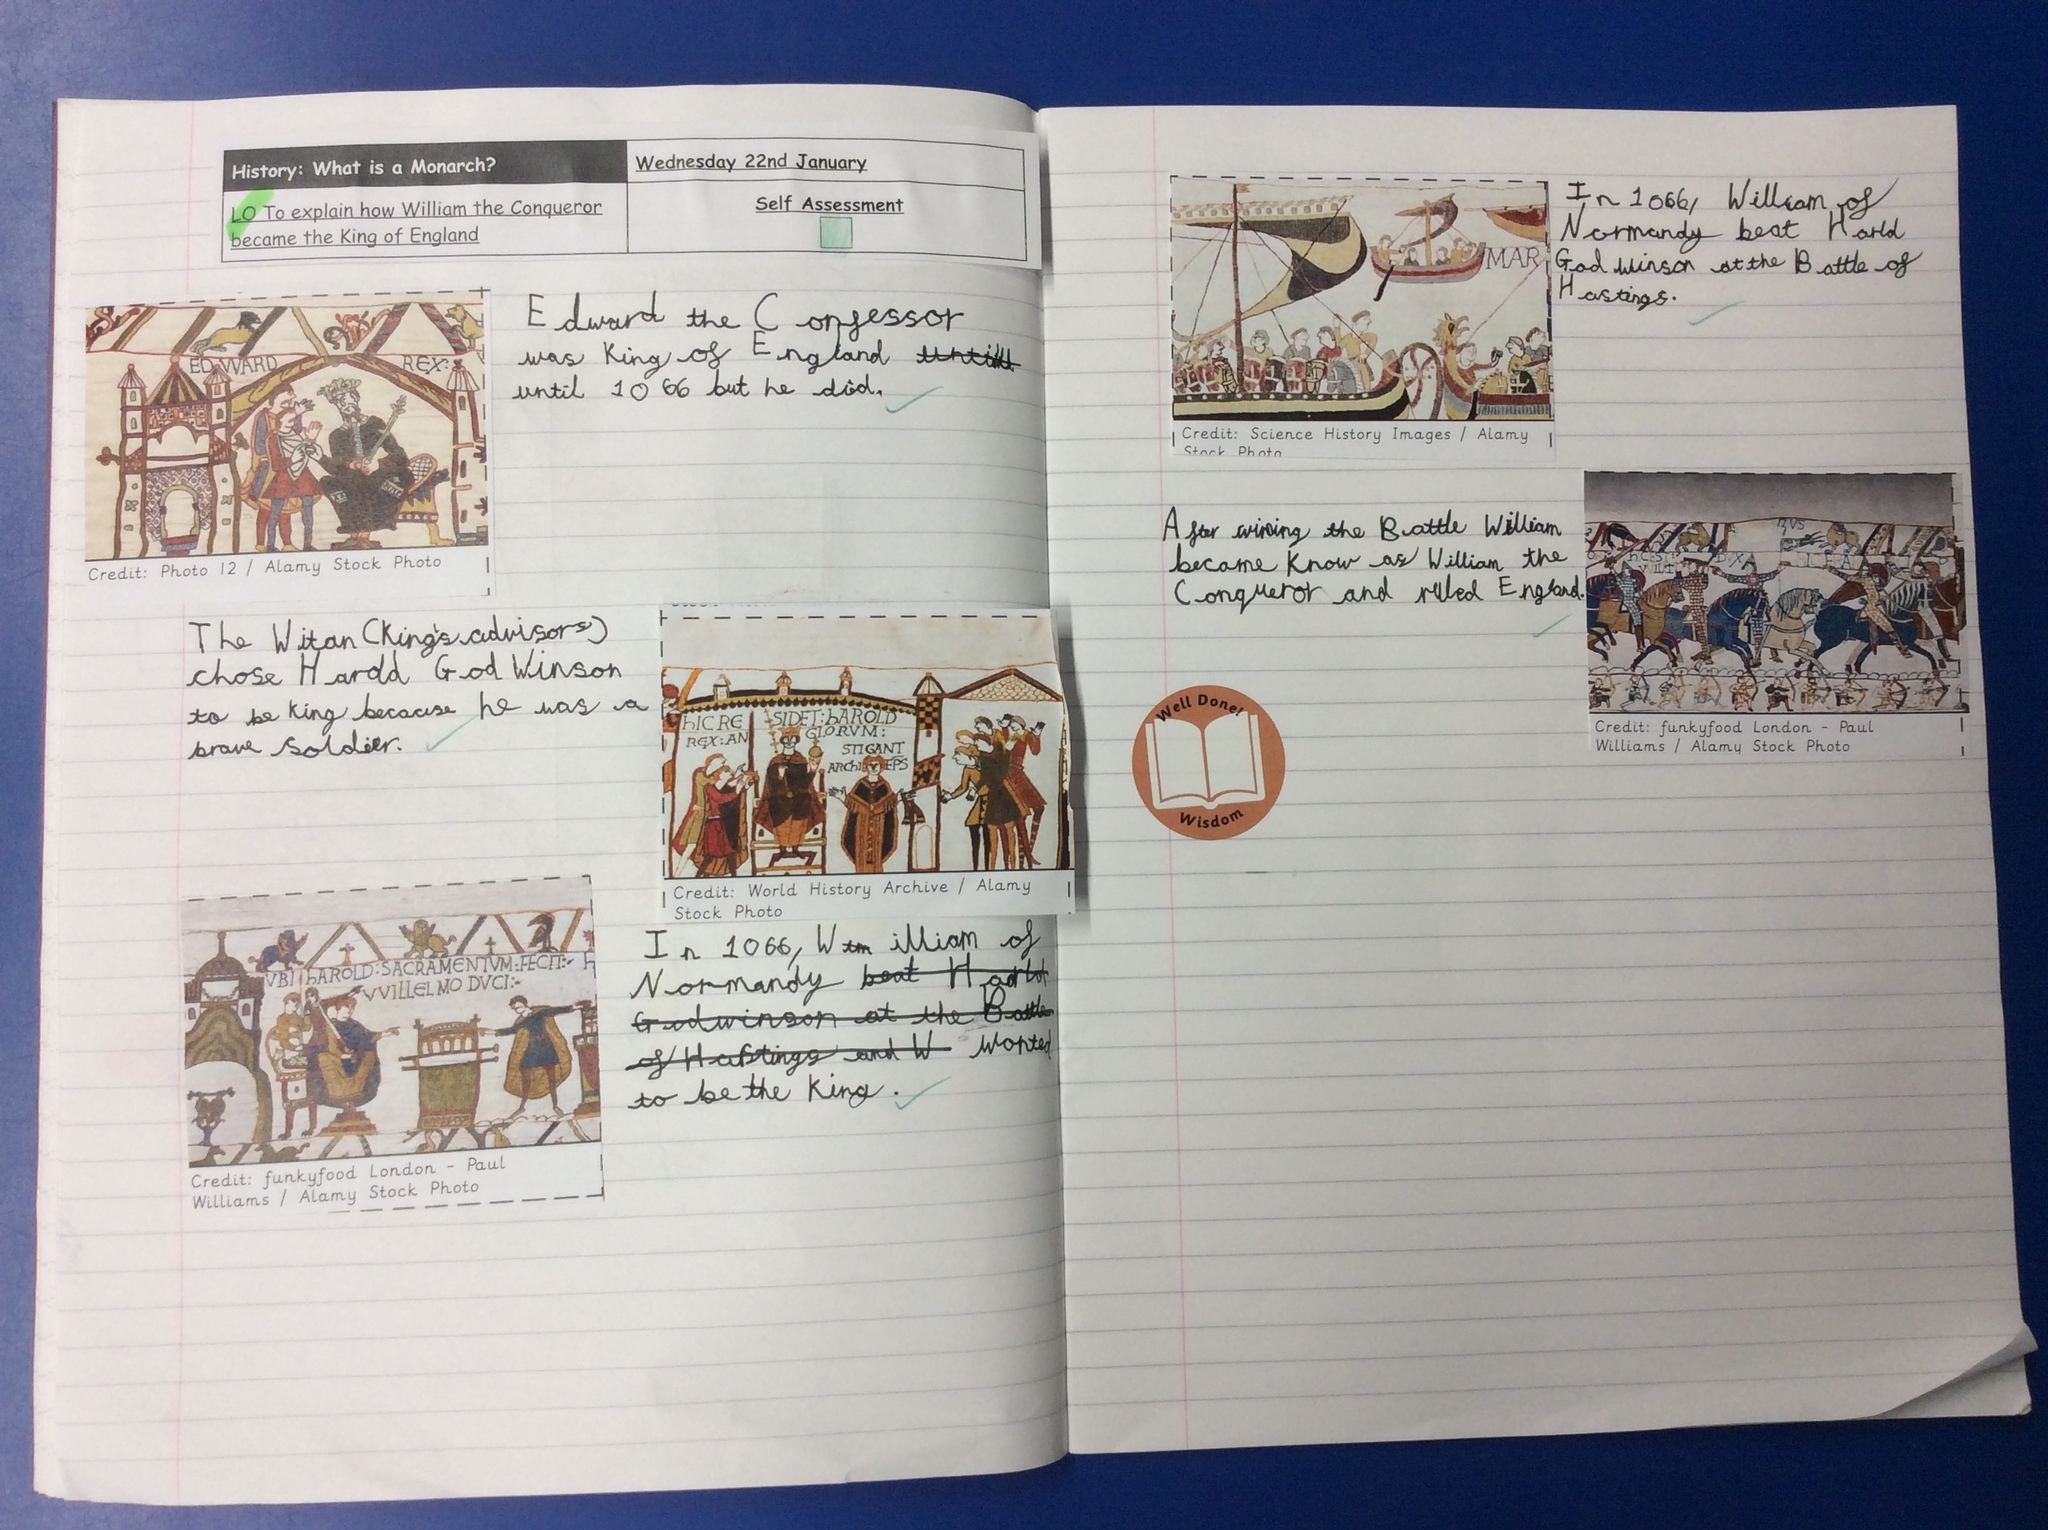 History: What is a Monarch?
Wednesday 22nd January
LO To explain how William the Conqueror
became the King of England
Self Assessment
EDVVARD REX:
Credit: Photo 12 / Alamy Stock Photo
Edward the Confessor
was King of England untill
until 1066 but he did.
The Witan (King's advisors)
chose Harold God Winson
to be King because he was a
brave soldier.
HIC RE SIDET: HAROLD
REX: AN GLORVM:
STIGANT
ARCHI EPS
Credit: World History Archive / Alamy
Stock Photo
VBI HAROLD: SACRAMENTVM: FECIT:
VVILLELMO DVCI:
Credit: funkyfood London - Paul
Williams / Alamy Stock Photo
In 1066, W illiam of
Normandy beat Harld
Godwinson at the Battle
of Hastings and W wonted
to be the King.
MAR
Credit: Science History Images / Alamy
Stock Photo
In 1066, William of
Normandy beat Harld
God winson at the Battle of
Hastings.
After wining the Battle William
became Know as William the
Conqueror and ruled England.
Credit: funkyfood London - Paul
Williams / Alamy Stock Photo
Well Done!
Wisdom